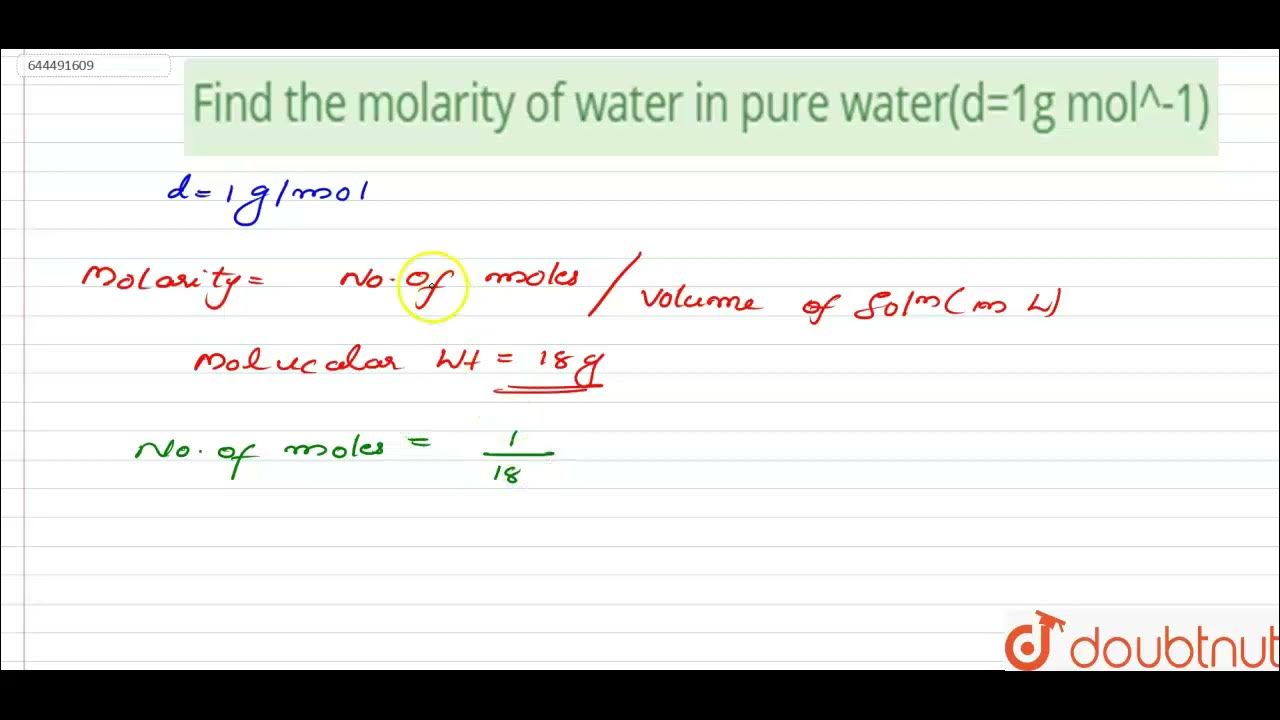 644491609
Find the molarity of water in pure water(d=1g mol^-1)
d = 1 g/mol
Molarity = No. of moles / volume of Soln (in L)
Molucalar Wt = 18g
No. of moles = 1/18
doubtnut